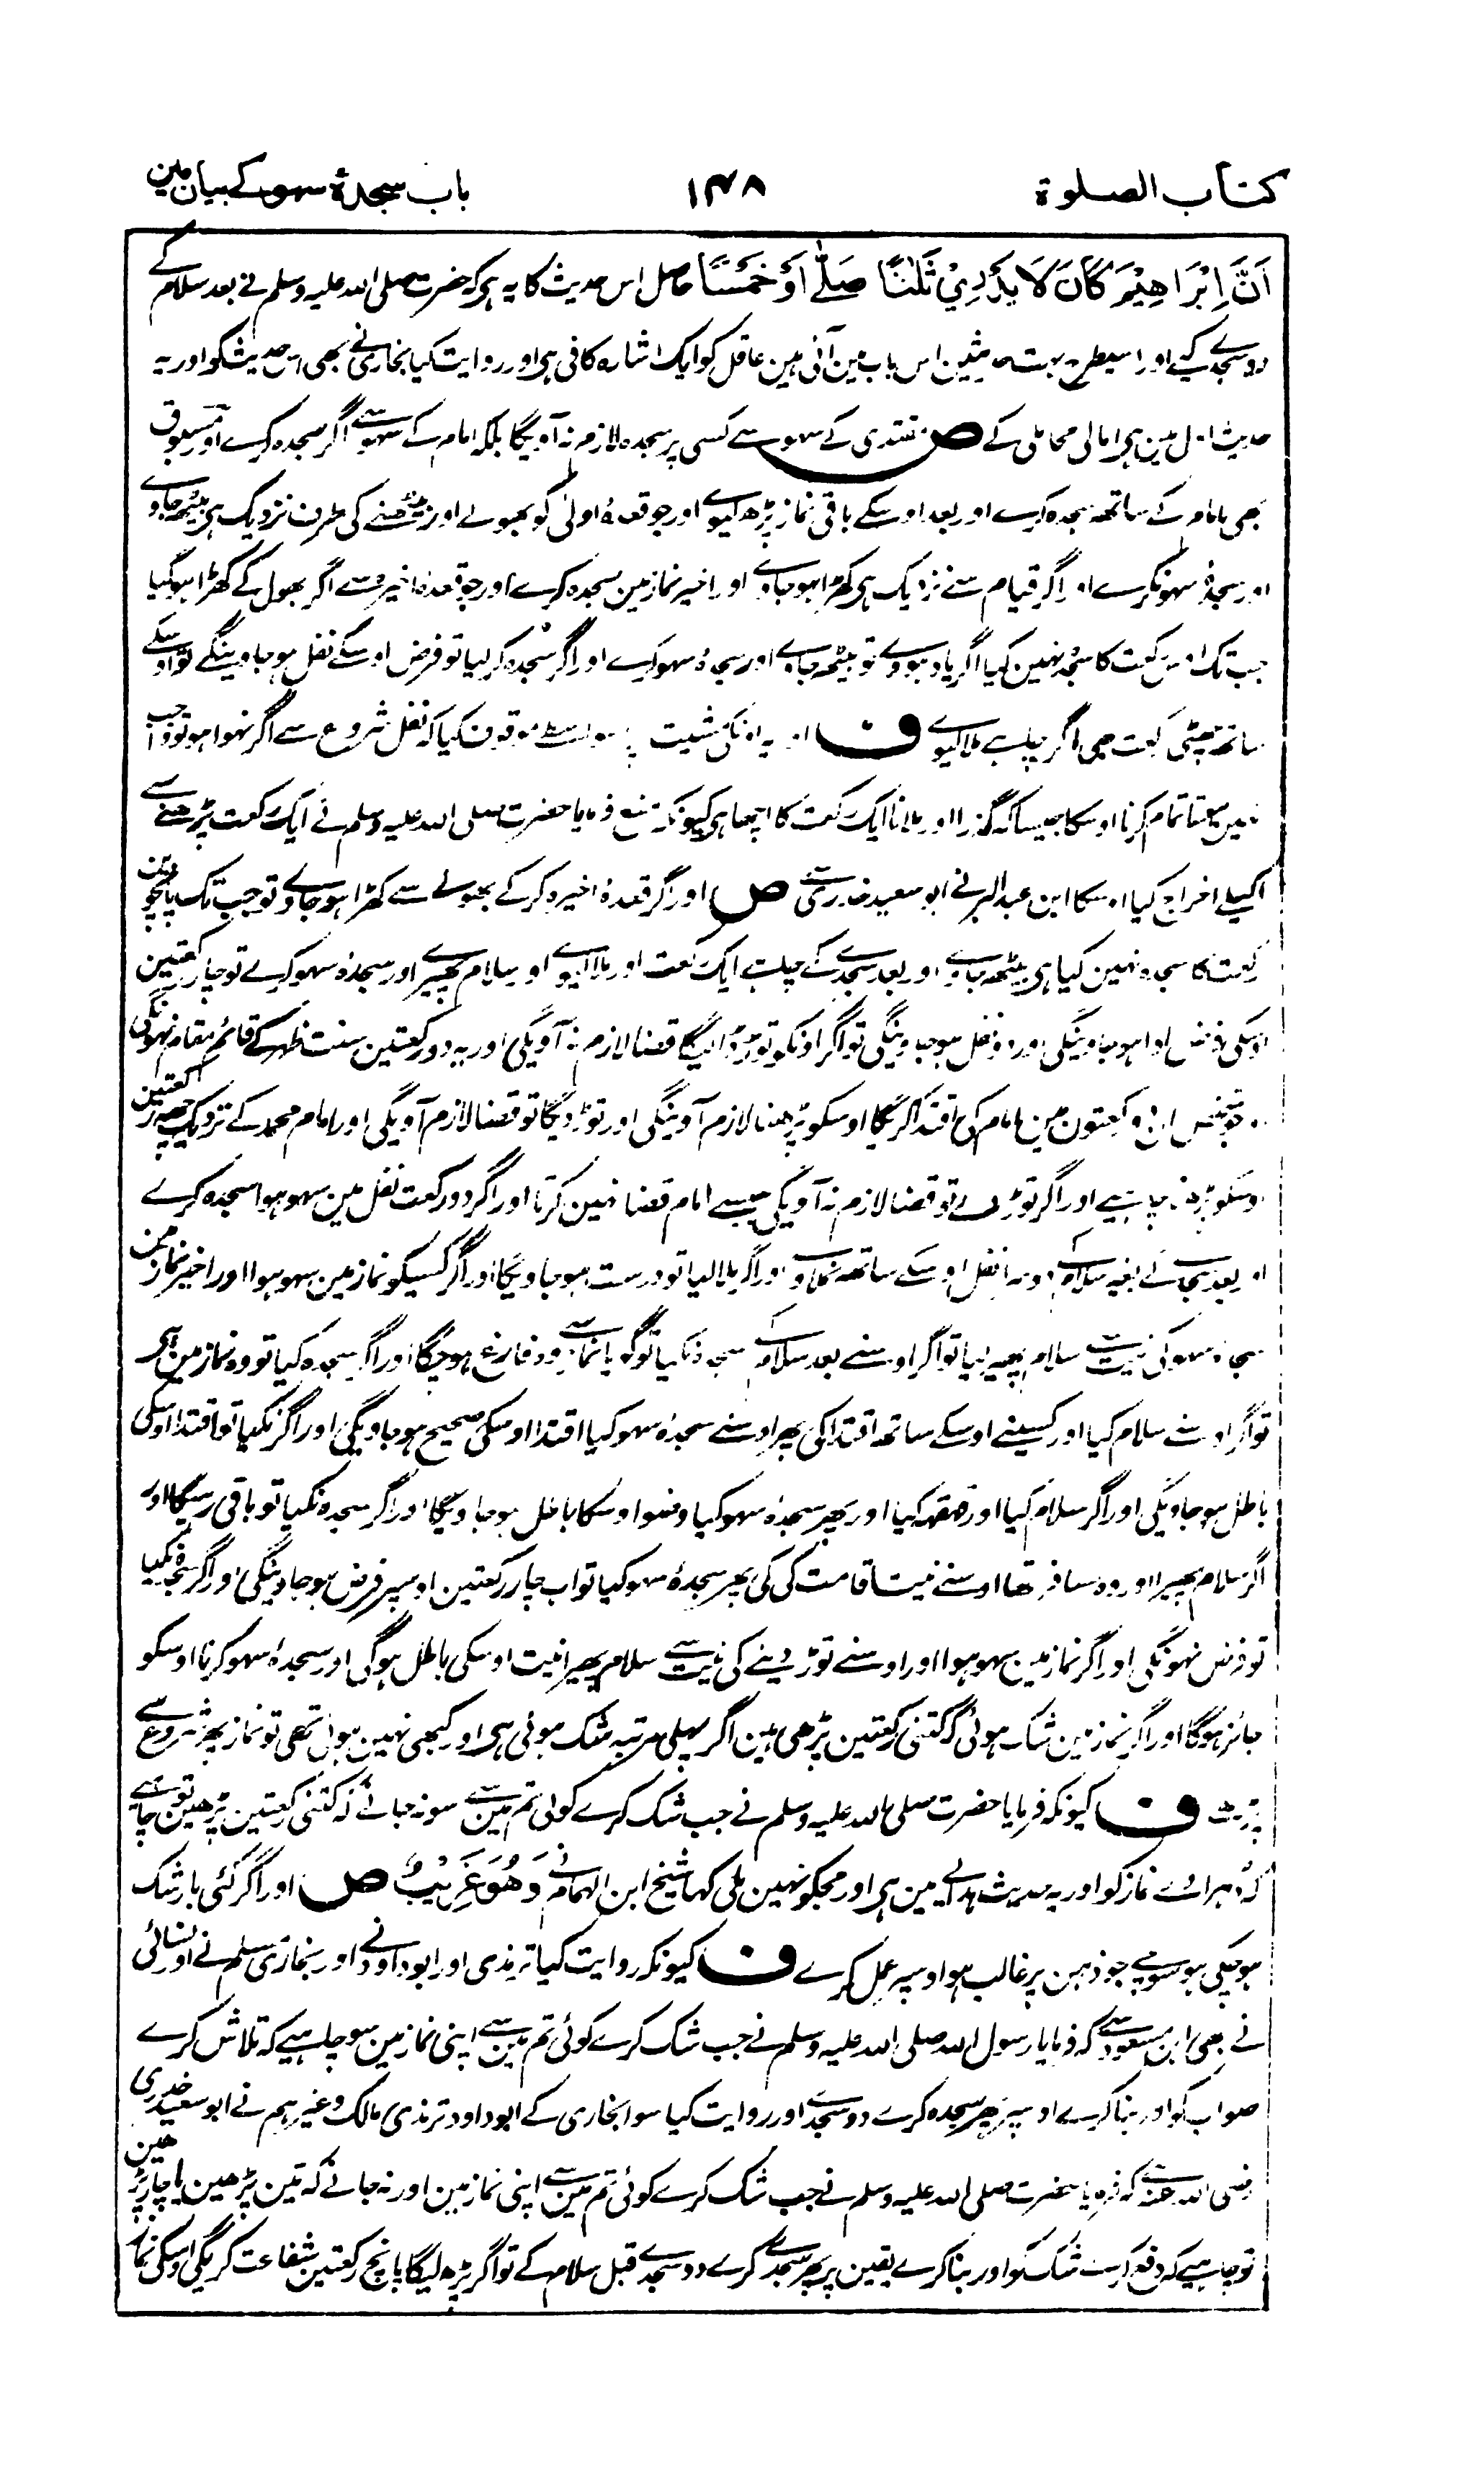 کتاب الصلوۃ ۱۴۸ باب سجدۂ سہو کے بیان مین
اَنَّ اِبْرَاهِیْمَ کَانَ لَا یَدْرِیْ ثَلٰثًا صَلّٰی اَوْ خَمْسًا حاصل اس حدیث کا یہ ہی کہ حضرت صلی اللہ علیہ وسلم نے بعد سلام کے
دو سجدے کیے اور اسیطرح بہت حدیثین اس باب مین آئی ہین عاقل کو ایک اشارہ کافی ہی اور روایت کیا بخاری نے بھی اس حدیث کو اور یہ
حدیث مین ہی امالی محاملی کے ص مقتدی کے سہو سے کسی پر سجدہ لازم نہ آویگا بلکہ امام کے سہو سے اگر سجدہ کرے اور مسبوق
بھی امام کے ساتھ سجدہ کرے اور بعد اوسکے باقی نماز پڑھ لیوے اور جو قعدۂ اولیٰ کو بھولے اور بیٹھنے کی طرف نزدیک ہی بیٹھ جاوے
اور سجدۂ سہو نکرے اور اگر قیام سے نزدیک ہی کھڑا ہو جاوے اور اخیر نماز مین سجدہ کرے اور جو قعدۂ اخیرہ سے اگر بھول کے کھڑا ہو گیا
جب تک اوس رکعت کا سجدہ نہین کیا اگر یاد ہووے تو بیٹھ جاوے اور سجدۂ سہو کرے اور اگر سجدہ کر لیا تو فرض اوسکے نفل ہو جاوینگے تو اوسکے
ساتھ چھٹی رکعت بھی اگر چاہے ملا لیوے ف اور یہ اوسکی مشیت پر موقوف کیا کہ نفل شروع سے اگر نہوا ہو تو واجب
نہین ہوتا تمام کرنا اوسکا جیسا کہ گذرا اور ملانا ایک رکعت کا اچھا ہی کیونکہ منع فرمایا حضرت صلی اللہ علیہ وسلم نے ایک رکعت پڑھنے سے
اکیلے اخراج کیا اوسکا ابن عبد البر نے ابو سعید خدری سے ص اور اگر قعدۂ اخیرہ کرکے بھولے سے کھڑا ہو جاوے تو جب تک پانچوین
رکعت کا سجدہ نہین کیا ہی بیٹھ جاوے اور بعد سجدے کے چاہے ایک رکعت اور ملا لیوے اور سلام پھیرے اور سجدۂ سہو کرے تو چار رکعتین
اوسکی فرض ادا ہو جاوینگی اور دو نفل ہو جاوینگی تو اگر اونکو توڑ ڈالیگا قضا لازم نہ آویگی اور یہ دو رکعتین سنت ظہر کے قائم مقام نہونگی
اور جو شخص ان دو رکعتون مین امام کی اقتدا کریگا اوسکو پڑھنا لازم آوینگی اور توڑ دیگا تو قضا لازم آویگی اور امام محمد کے نزدیک چھہ رکعتین
اوسکو پڑھنا چاہیے اور اگر توڑ دے تو قضا لازم نہ آویگی جیسے امام قضا نہین کرتا اور اگر دو رکعت نفل مین سہو ہوا سجدہ کرے
اور بعد سجدے کے بغیر سلام کے دوسرا نفل اوسکے ساتھ نملاوے اور اگر ملا لیا تو درست ہو جاویگا اور اگر کسیکو نماز مین سہو ہوا اور اخیر نماز مین
سجدۂ سہو کی نیت سے سلام پھیر لیا تو اگر اوسنے بعد سلام کے سجدہ نکیا تو گویا نماز سے وہ فارغ ہو چکا اور اگر سجدہ کیا تو وہ نماز مین ہی
تو اگر اوسنے سلام کیا اور کسینے اوسکے ساتھ اقتدا کی پھر اوسنے سجدۂ سہو کیا اقتدا اوسکی صحیح ہو جاویگی اور اگر نکیا تو اقتدا اوسکی
باطل ہو جاویگی اور اگر سلام کیا اور قہقہہ کیا اور پھر سجدۂ سہو کیا وضو اوسکا باطل ہو جاویگا اور اگر سجدہ نکیا تو باقی رہیگا اور
اگر سلام پھیرا اور وہ مسافر تھا اوسنے نیت اقامت کی کی پھر سجدۂ سہو کیا تو اب چار رکعتین اوسپر فرض ہو جاوینگی اور اگر سجدہ نکیا
تو فرض نہونگی اور اگر نماز مین سہو ہوا اور اوسنے توڑ دینے کی نیت سے سلام پھیرا نیت اوسکی باطل ہوگی اور سجدۂ سہو کرنا اوسکو
جائز ہوگا اور اگر نماز مین شک ہوئی کہ کتنی رکعتین پڑھی ہین اگر پہلی مرتبہ شک ہوئی ہی اور کبھی نہین ہوئی تھی تو نماز پھر شروع سے
پڑھے ف کیونکہ فرمایا حضرت صلی اللہ علیہ وسلم نے جب شک کرے کوئی تم مین سے سو نہ جانے کہ کتنی رکعتین پڑھین تو چاہیے
کہ دہراوے نماز کو اور یہ حدیث ہدایے مین ہی اور مجکو نہین ملی کہا شیخ ابن الہمام نے وَهُوَ غَرِیْبٌ ص اور اگر کئی بار شک
ہو چکی ہو سوچے جو ذہن پر غالب ہو اوسپر عمل کرے ف کیونکہ روایت کیا ترمذی اور ابو داود نے اور بخاری مسلم نے اور نسائی
نے بھی ابن مسعود سے کہ فرمایا رسول اللہ صلی اللہ علیہ وسلم نے جب شک کرے کوئی تم مین سے اپنی نماز مین سو چاہیے کہ تلاش کرے
صواب کو اور بنا کرے اوسپر پھر سجدہ کرے دو سجدے اور روایت کیا سوا بخاری کے ابو داود ترمذی مالک وغیرہم نے ابو سعید خدری
رضی اللہ عنہ سے کہ فرمایا حضرت صلی اللہ علیہ وسلم نے جب شک کرے کوئی تم مین سے اپنی نماز مین اور نہ جانے کہ تین پڑھین یا چار پڑھین
تو چاہیے کہ دفع کرے شک کو اور بنا کرے یقین پر پھر سجدے کرے دو سجدے قبل سلام کے تو اگر پڑھ لیگا پانچ رکعتین شفاعت کریگی اوسکی نماز